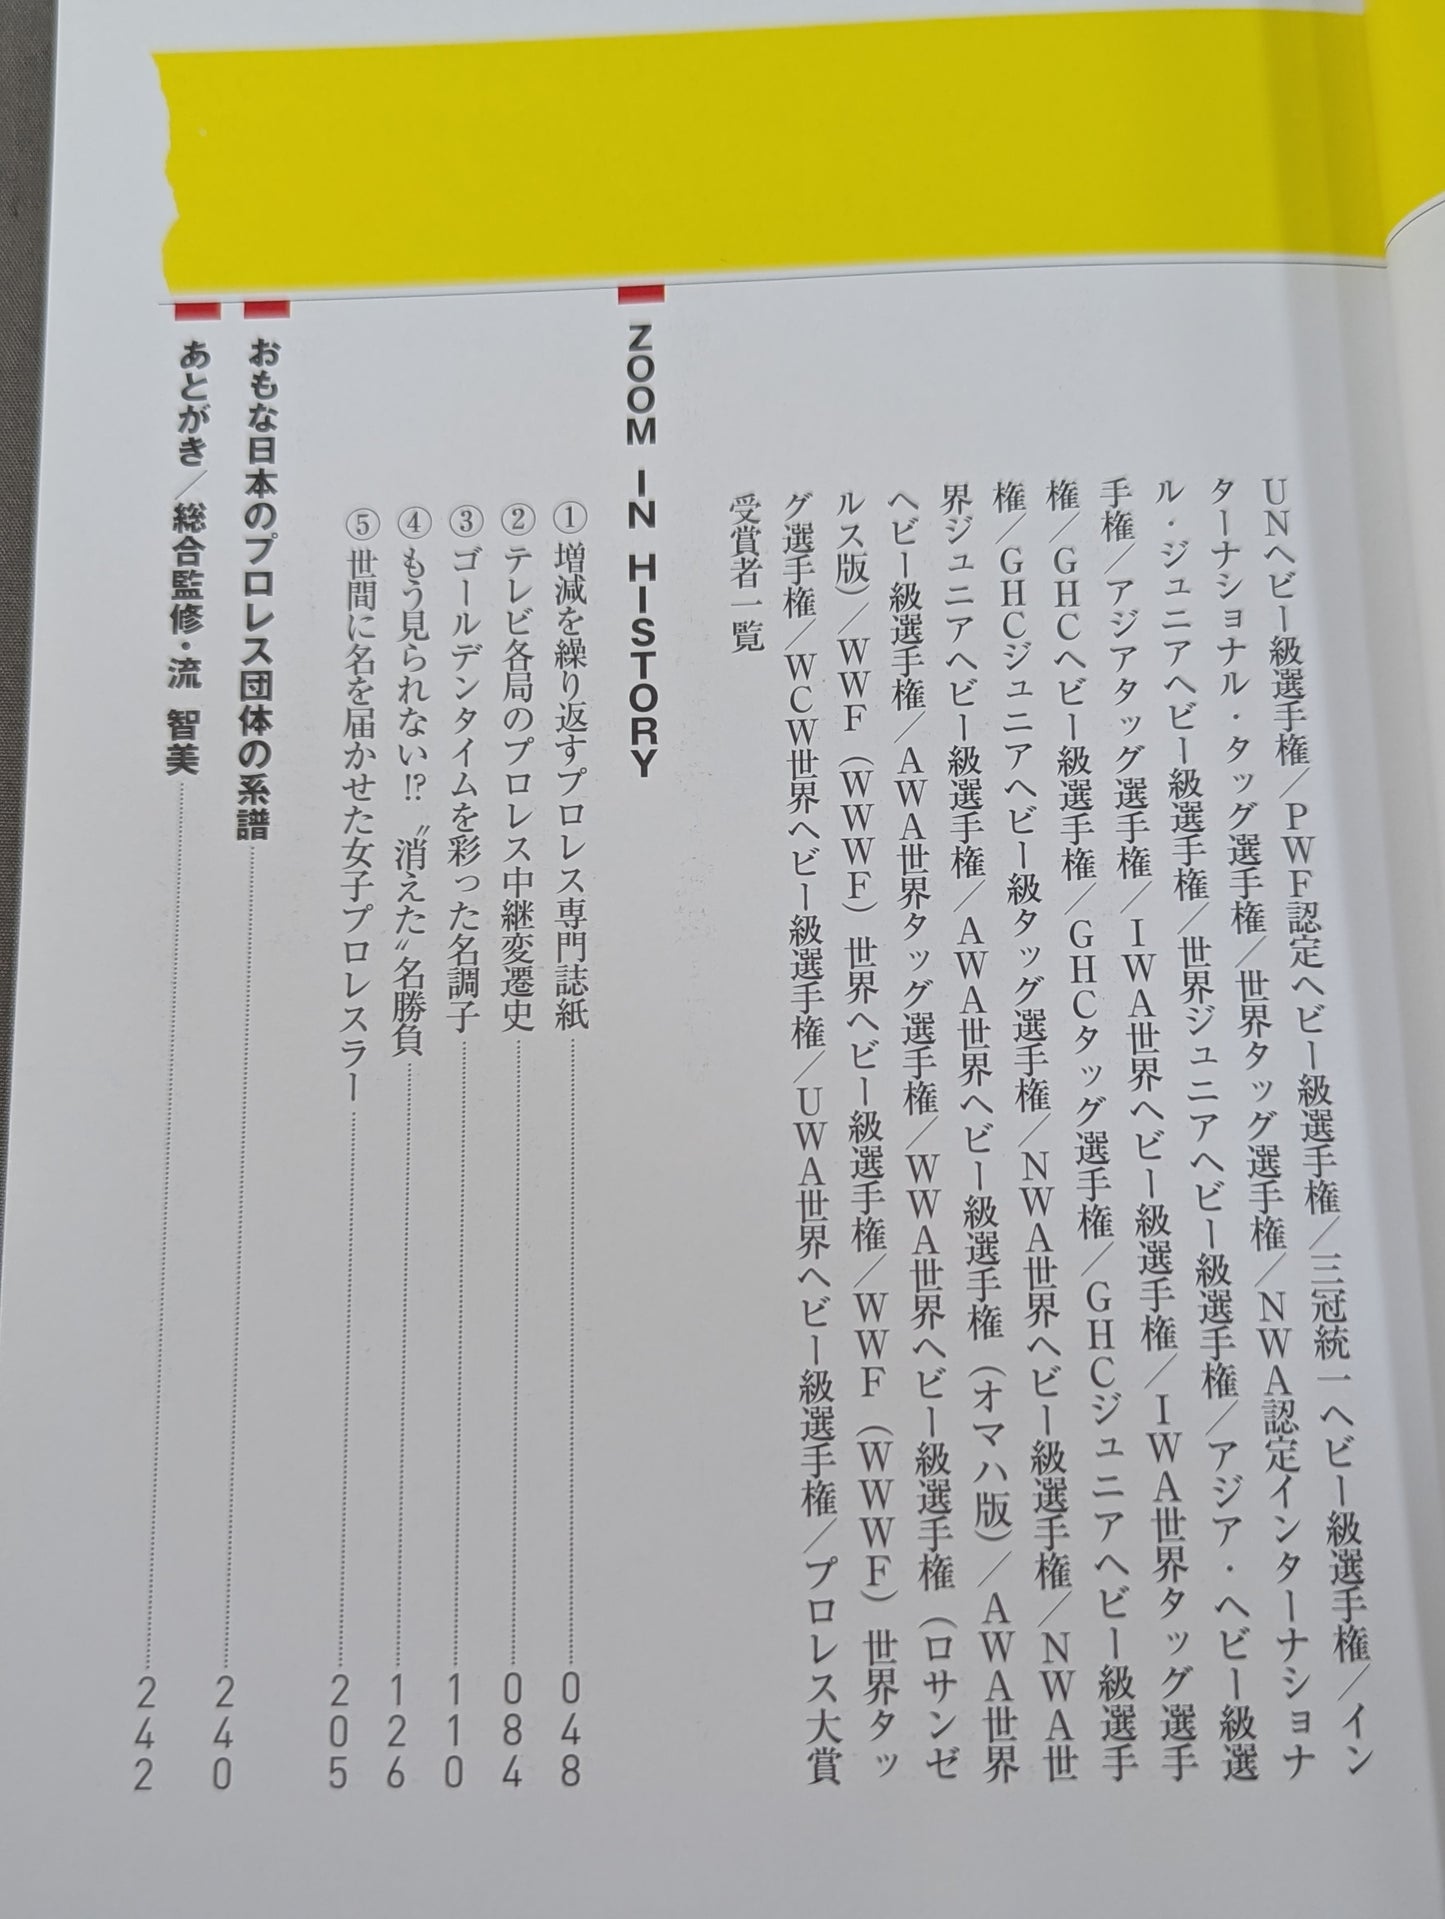 UNヘビー級選手権／PWF認定ヘビー級選手権／三冠統一ヘビー級選手権／イン
ターナショナル・タッグ選手権／世界タッグ選手権／NWA認定インターナショナ
ル・ジュニアヘビー級選手権／世界ジュニアヘビー級選手権／アジア・ヘビー級選
手権／アジアタッグ選手権／IWA世界ヘビー級選手権／IWA世界タッグ選手
権／GHCヘビー級選手権／GHCタッグ選手権／GHCジュニアヘビー級選手
権／GHCジュニアヘビー級タッグ選手権／NWA世界ヘビー級選手権／NWA世
界ジュニアヘビー級選手権／AWA世界ヘビー級選手権（オマハ版）／AWA世界
ヘビー級選手権／AWA世界タッグ選手権／WWA世界ヘビー級選手権（ロサンゼ
ルス版）／WWF（WWWF）世界ヘビー級選手権／WWF（WWWF）世界タッ
グ選手権／WCW世界ヘビー級選手権／UWA世界ヘビー級選手権／プロレス大賞
受賞者一覧
ZOOM IN HISTORY
①増減を繰り返すプロレス専門誌紙 048
②テレビ各局のプロレス中継変遷史 084
③ゴールデンタイムを彩った名調子 110
④もう見られない!?〝消えた〟名勝負 126
⑤世間に名を届かせた女子プロレスラー 205
おもな日本のプロレス団体の系譜 240
あとがき／総合監修・流 智美 242